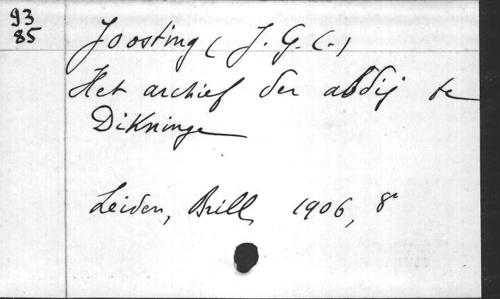 93
85
Joosting (J. G. C.)
Het archief der abdij te
Dikninge
Leiden, Brill, 1906, 8°